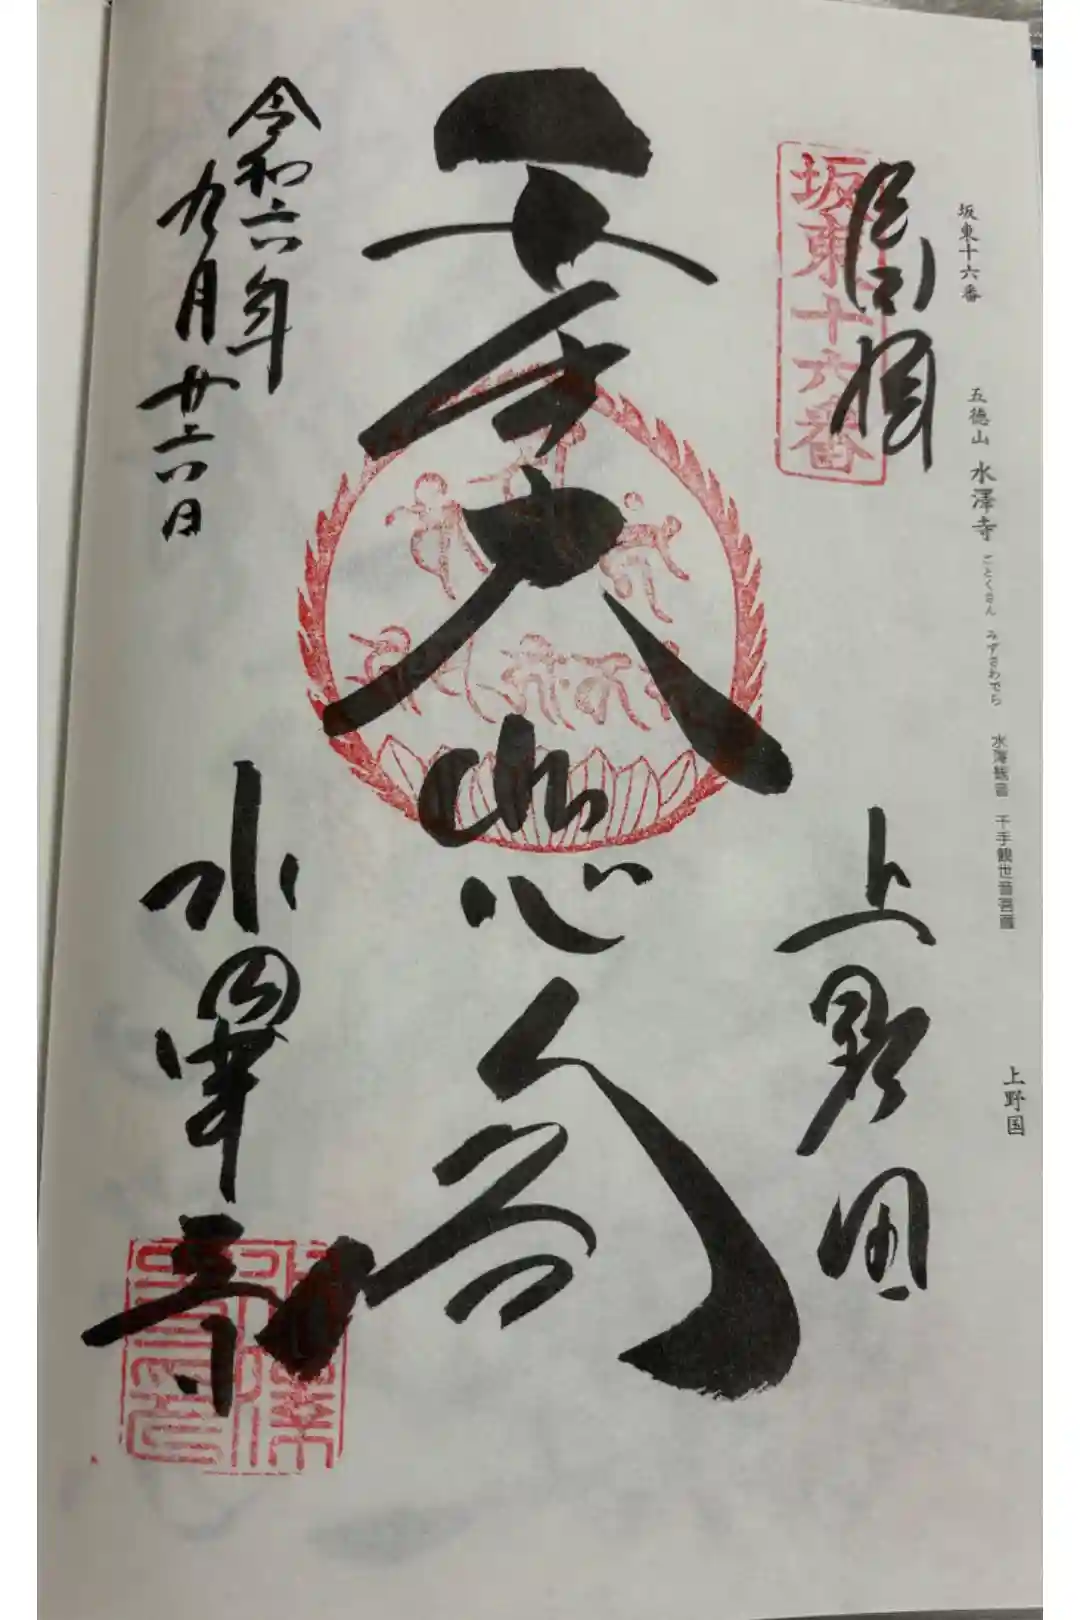 坂東十六番 五徳山 水澤寺 ごとくさん みずさわでら 水澤観音 千手観世音菩薩 上野国
坂東十六番
上野国
千手大悲閣
令和六年
九月廿六日
水澤寺